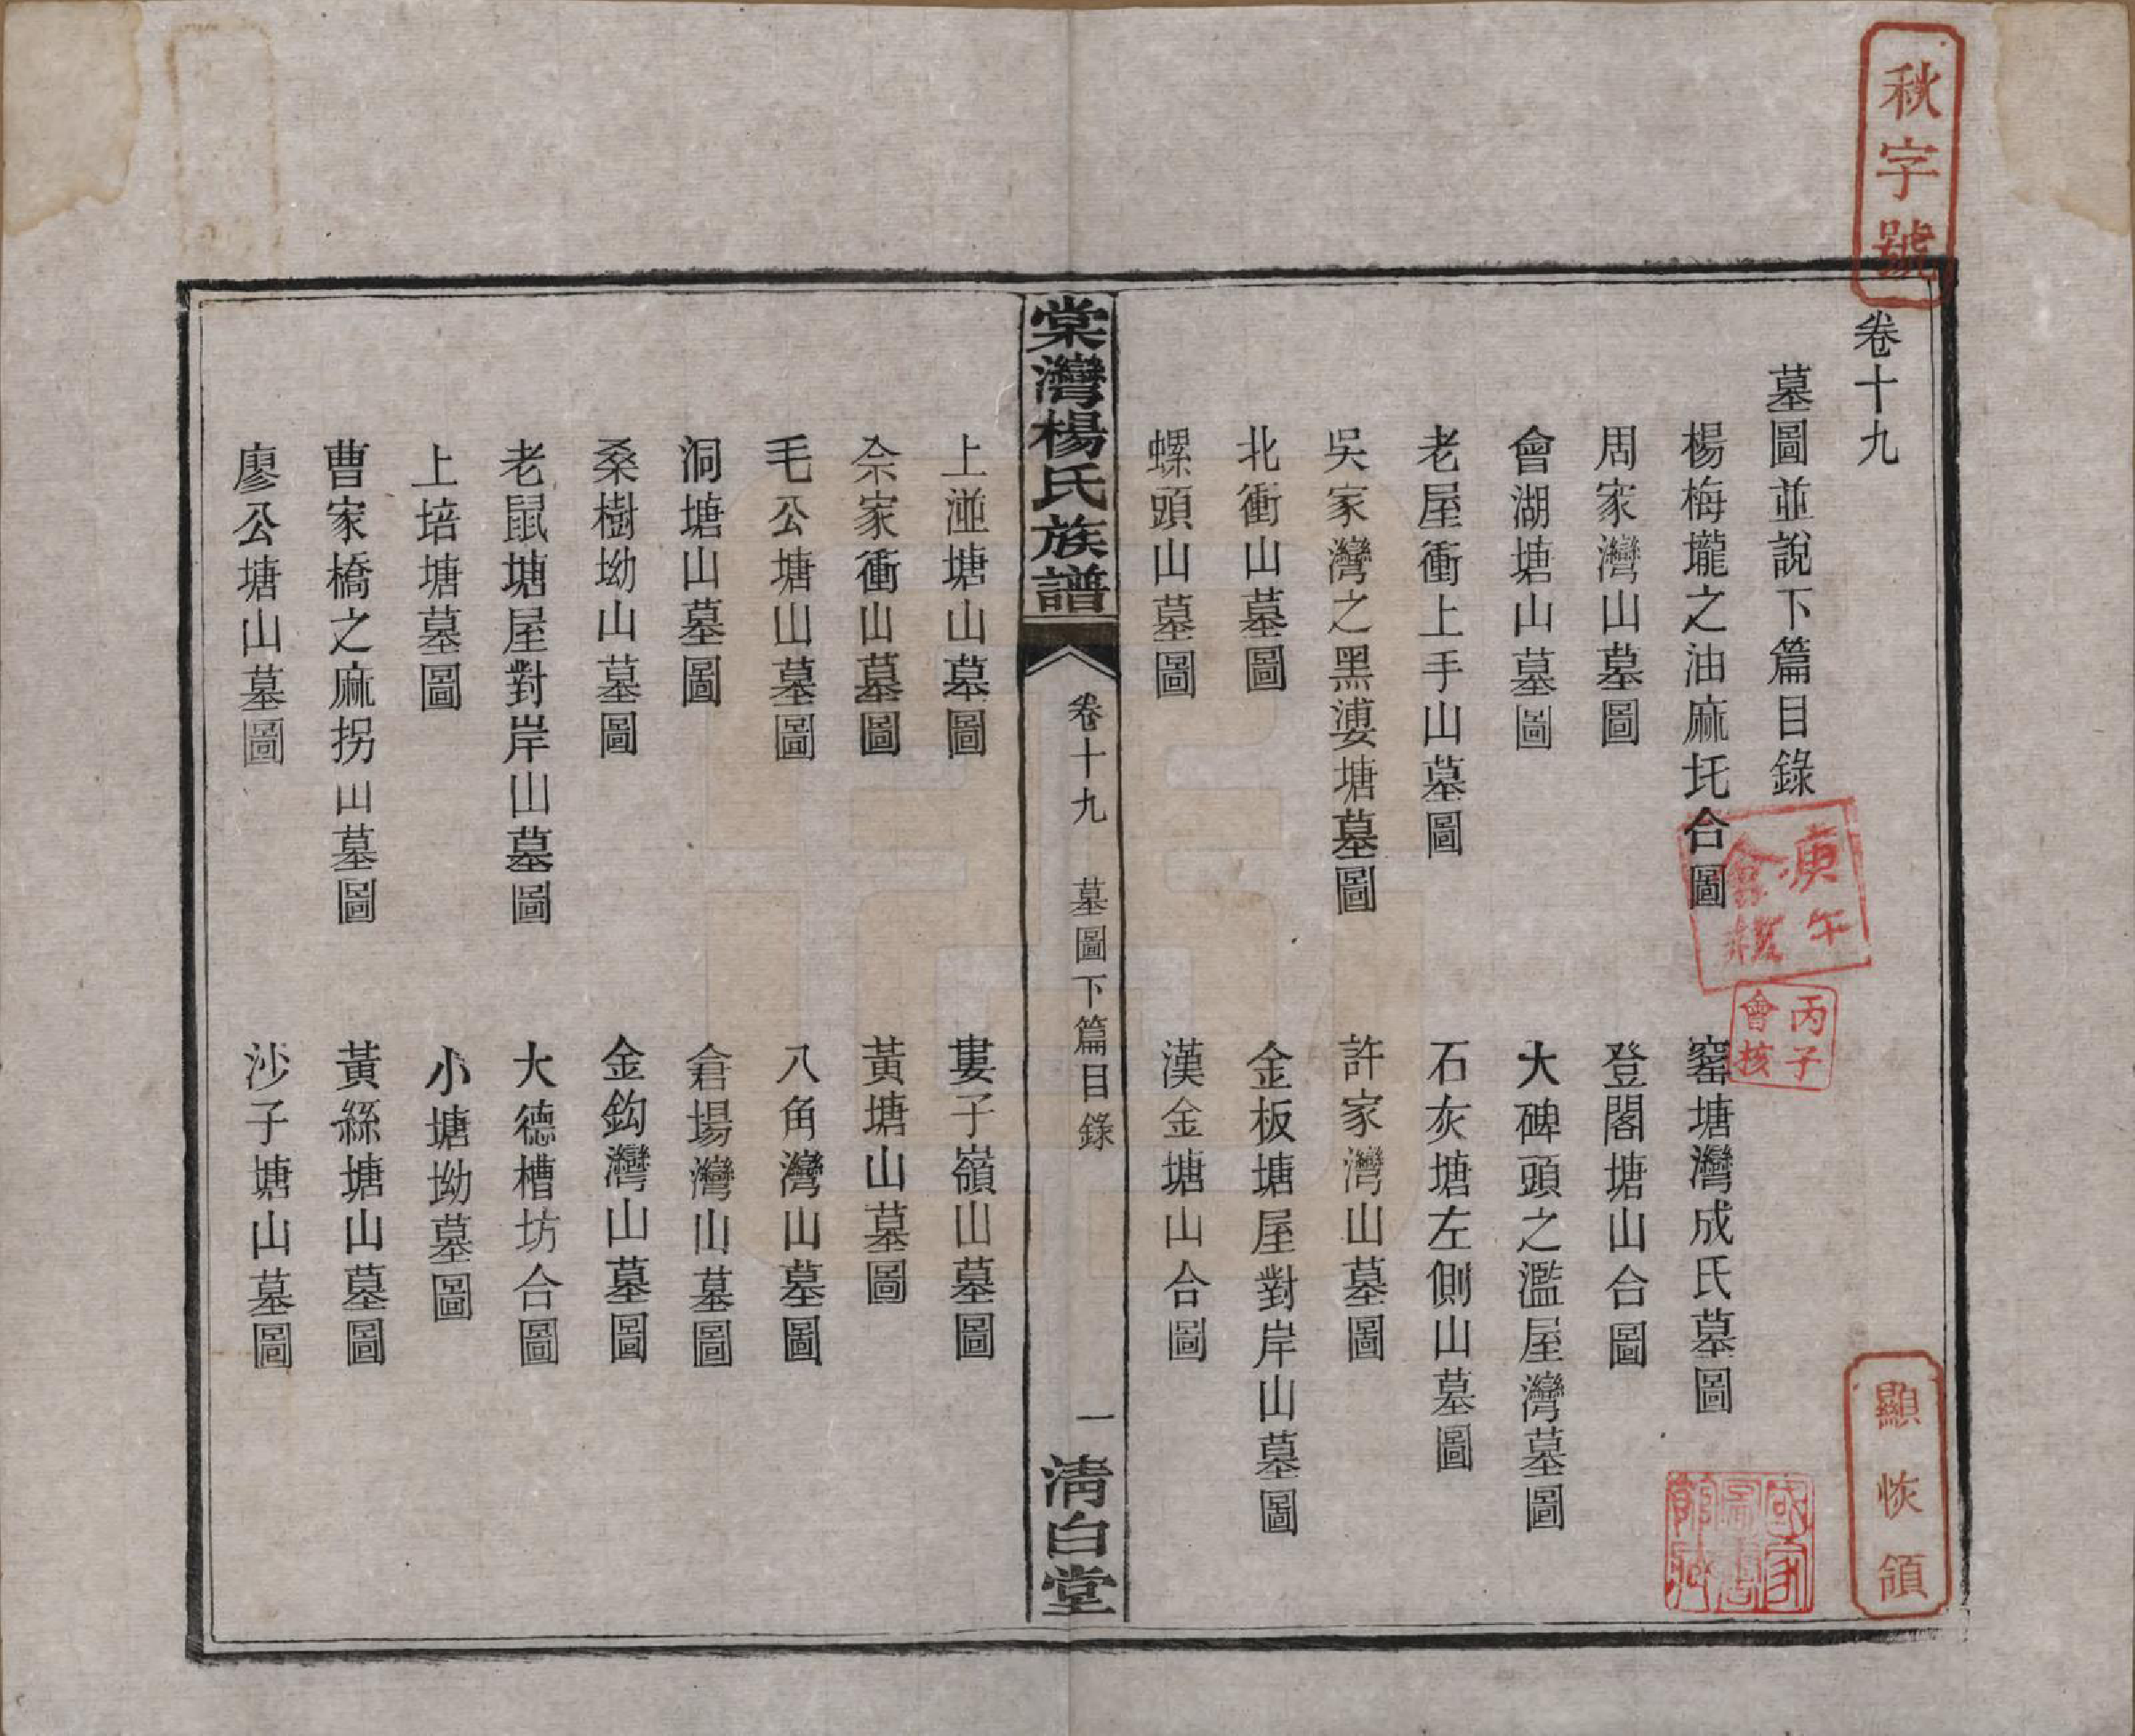 秋字號
卷十九
墓圖並說下篇目錄
楊梅壠之油麻圫合圖
窰塘灣成氏墓圖
周家灣山墓圖
登閣塘山合圖
會湖塘山墓圖
大碑頭之濫屋灣墓圖
老屋衝上手山墓圖
石灰塘左側山墓圖
吳家灣之黑漊塘墓圖
許家灣山墓圖
北衝山墓圖
金板塘屋對岸山墓圖
螺頭山墓圖
漢金塘山合圖
庚午會核
丙子會核
顯恢領
國家圖書館藏
棠灣楊氏族譜
卷十九
墓圖下篇目錄
一
清白堂
上湴塘山墓圖
婁子嶺山墓圖
佘家衝山墓圖
黃塘山墓圖
毛公塘山墓圖
八角灣山墓圖
洞塘山墓圖
倉場灣山墓圖
桑樹坳山墓圖
金鈎灣山墓圖
老鼠塘屋對岸山墓圖
大德槽坊合圖
上培塘墓圖
小塘坳墓圖
曹家橋之麻拐山墓圖
黃絲塘山墓圖
廖公塘山墓圖
沙子塘山墓圖